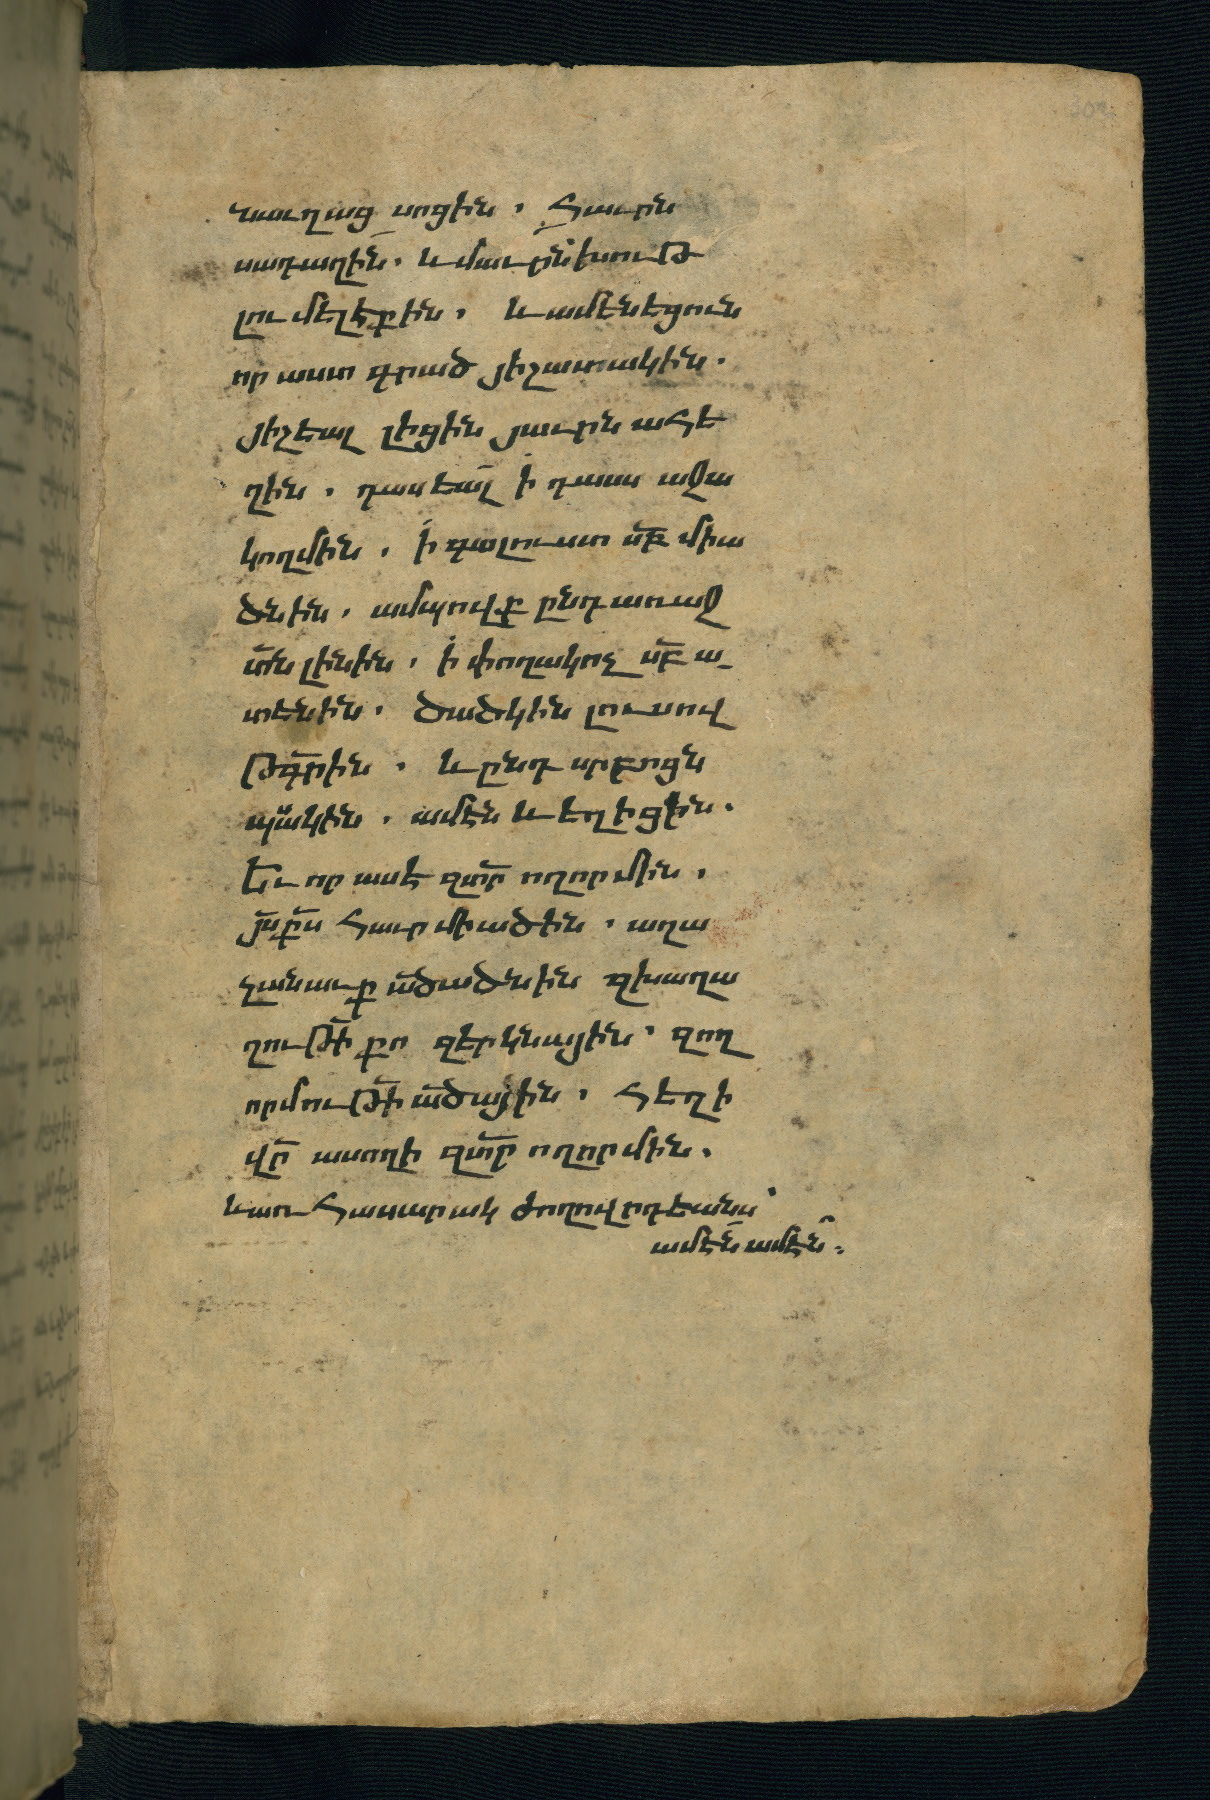 նաւղաց սոցին. հաւրն
սադաղին. և մաւրն խութ
լումելէքին. և ամէնեցուն
որ աստ գրած յիշատակին.
յիշեալ լիցին յաւրն ահէ
ղին. դասեալ ի դասս աջա
կողմին. ի գալուստ ս̅բ միա
ծնին. ամպովք ընդառաջ
տ̅ն լինին. ի փողակոչ ս̅բ ա_
տենին. ծածկին լուսով
թգ̅րին. և ընդ սրբոցն
պս̅ակին. ամէն և եղիցին.
Եւ որ ասէ զտ̅ր ողորմին.
յս̅ք̅ս հաւր միածին. աղա
չանաւք ա̅ծածնին զխաղա
ղութի̅ քո զերկնային. զող
որմութի̅ ա̅ծային. հեղի
վր̅ ասողի զտ̅ր ողորմին.
առհասարակ ժողովրդեանս
ամէն ամէն։